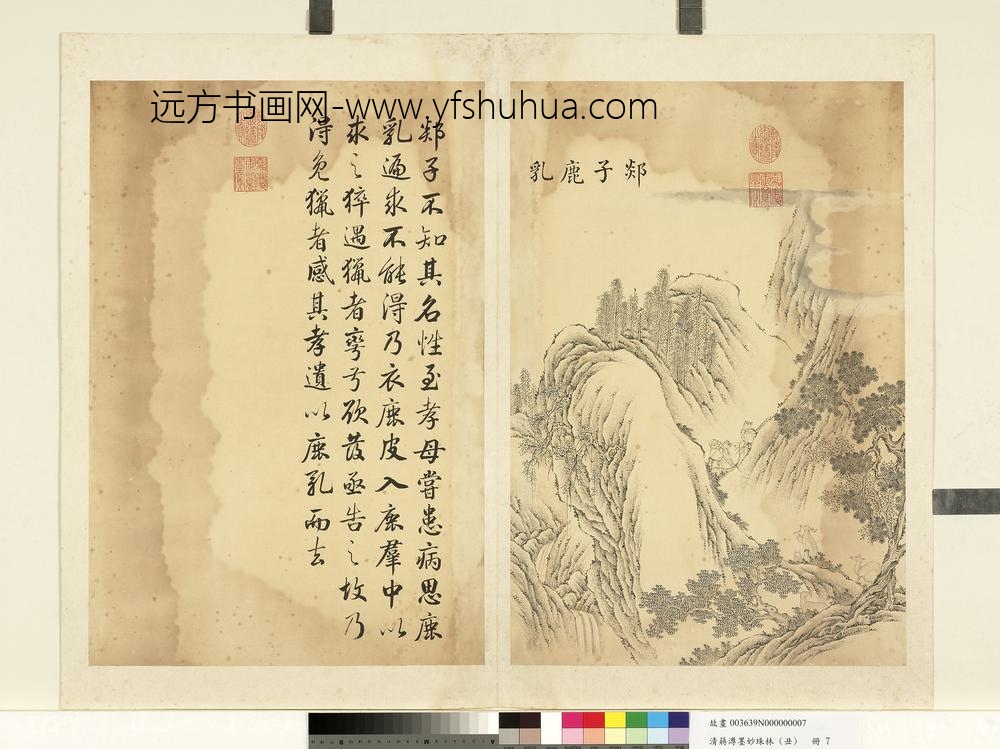 远方书画网-www.yfshuhua.com
郯子鹿乳
郯子不知其名性至孝母嘗患病思鹿
乳遍求不能得乃衣鹿皮入鹿羣中以
求之猝遇獵者彎弓欲發亟告之故乃
得免獵者感其孝遺以鹿乳而去
故畫 003639N000000007
清蔣溥墨妙珠林（丑） 冊 7